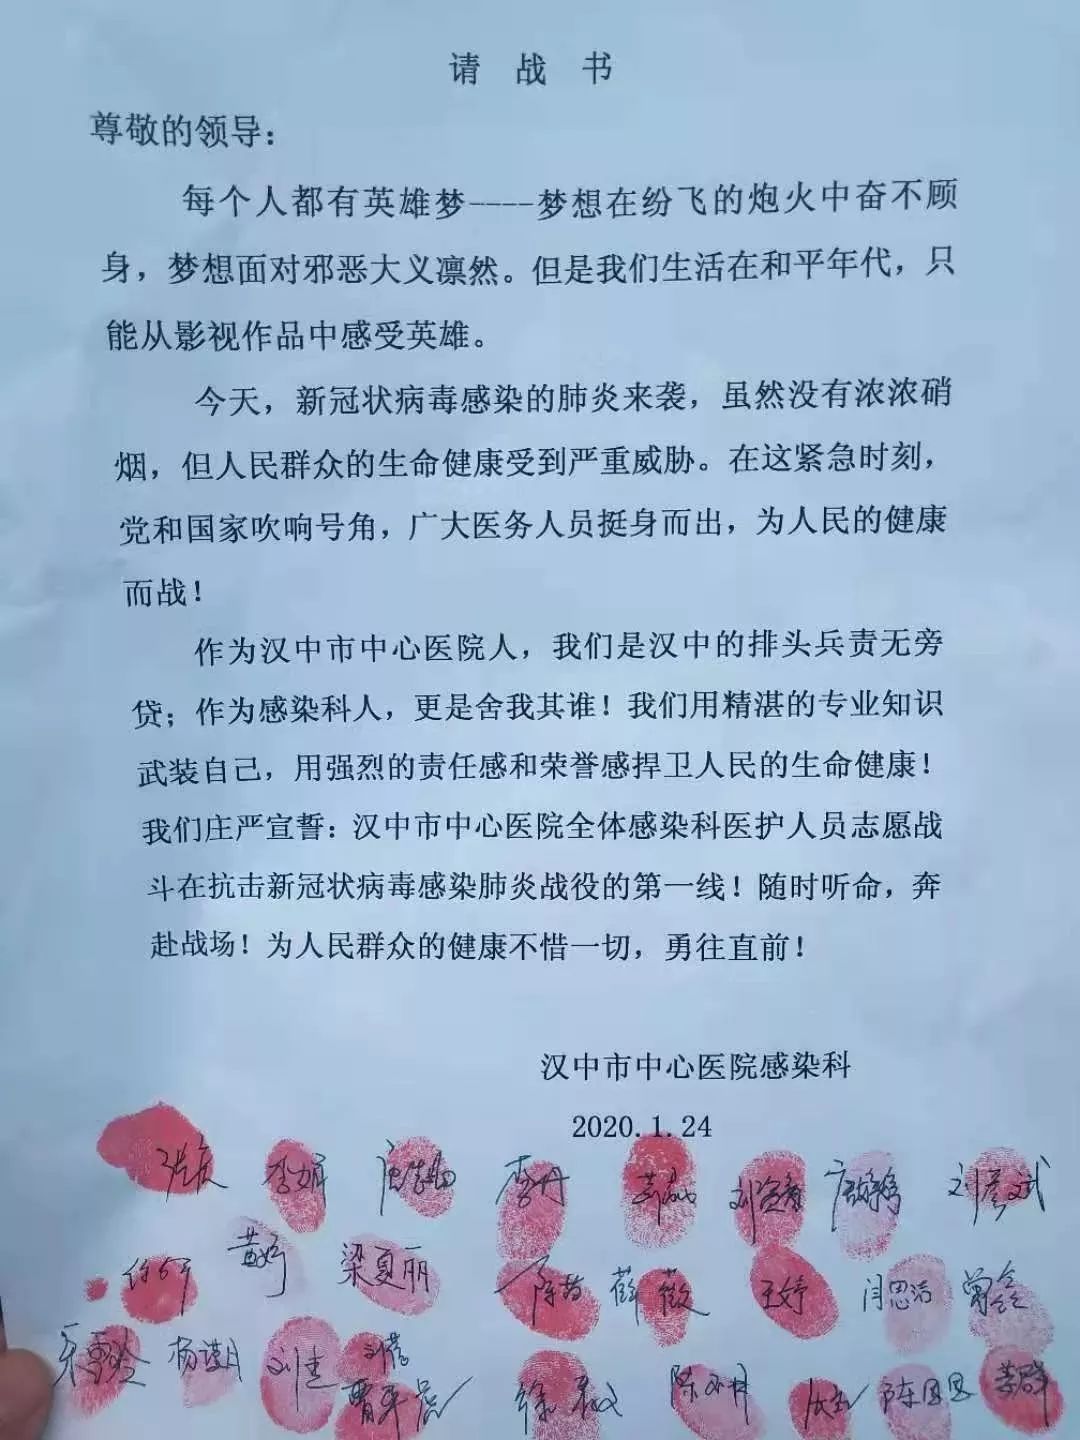 请 战 书
尊敬的领导：
每个人都有英雄梦----梦想在纷飞的炮火中奋不顾
身，梦想面对邪恶大义凛然。但是我们生活在和平年代，只
能从影视作品中感受英雄。
今天，新冠状病毒感染的肺炎来袭，虽然没有浓浓硝
烟，但人民群众的生命健康受到严重威胁。在这紧急时刻，
党和国家吹响号角，广大医务人员挺身而出，为人民的健康
而战！
作为汉中市中心医院人，我们是汉中的排头兵责无旁
贷；作为感染科人，更是舍我其谁！我们用精湛的专业知识
武装自己，用强烈的责任感和荣誉感捍卫人民的生命健康！
我们庄严宣誓：汉中市中心医院全体感染科医护人员志愿战
斗在抗击新冠状病毒感染肺炎战役的第一线！随时听命，奔
赴战场！为人民群众的健康不惜一切，勇往直前！
汉中市中心医院感染科
2020.1.24
李娟 李丹 刘彦斌
黄婷 梁夏丽 陈苗 薛薇 王婷 闫思洁
杨谨月 刘圭